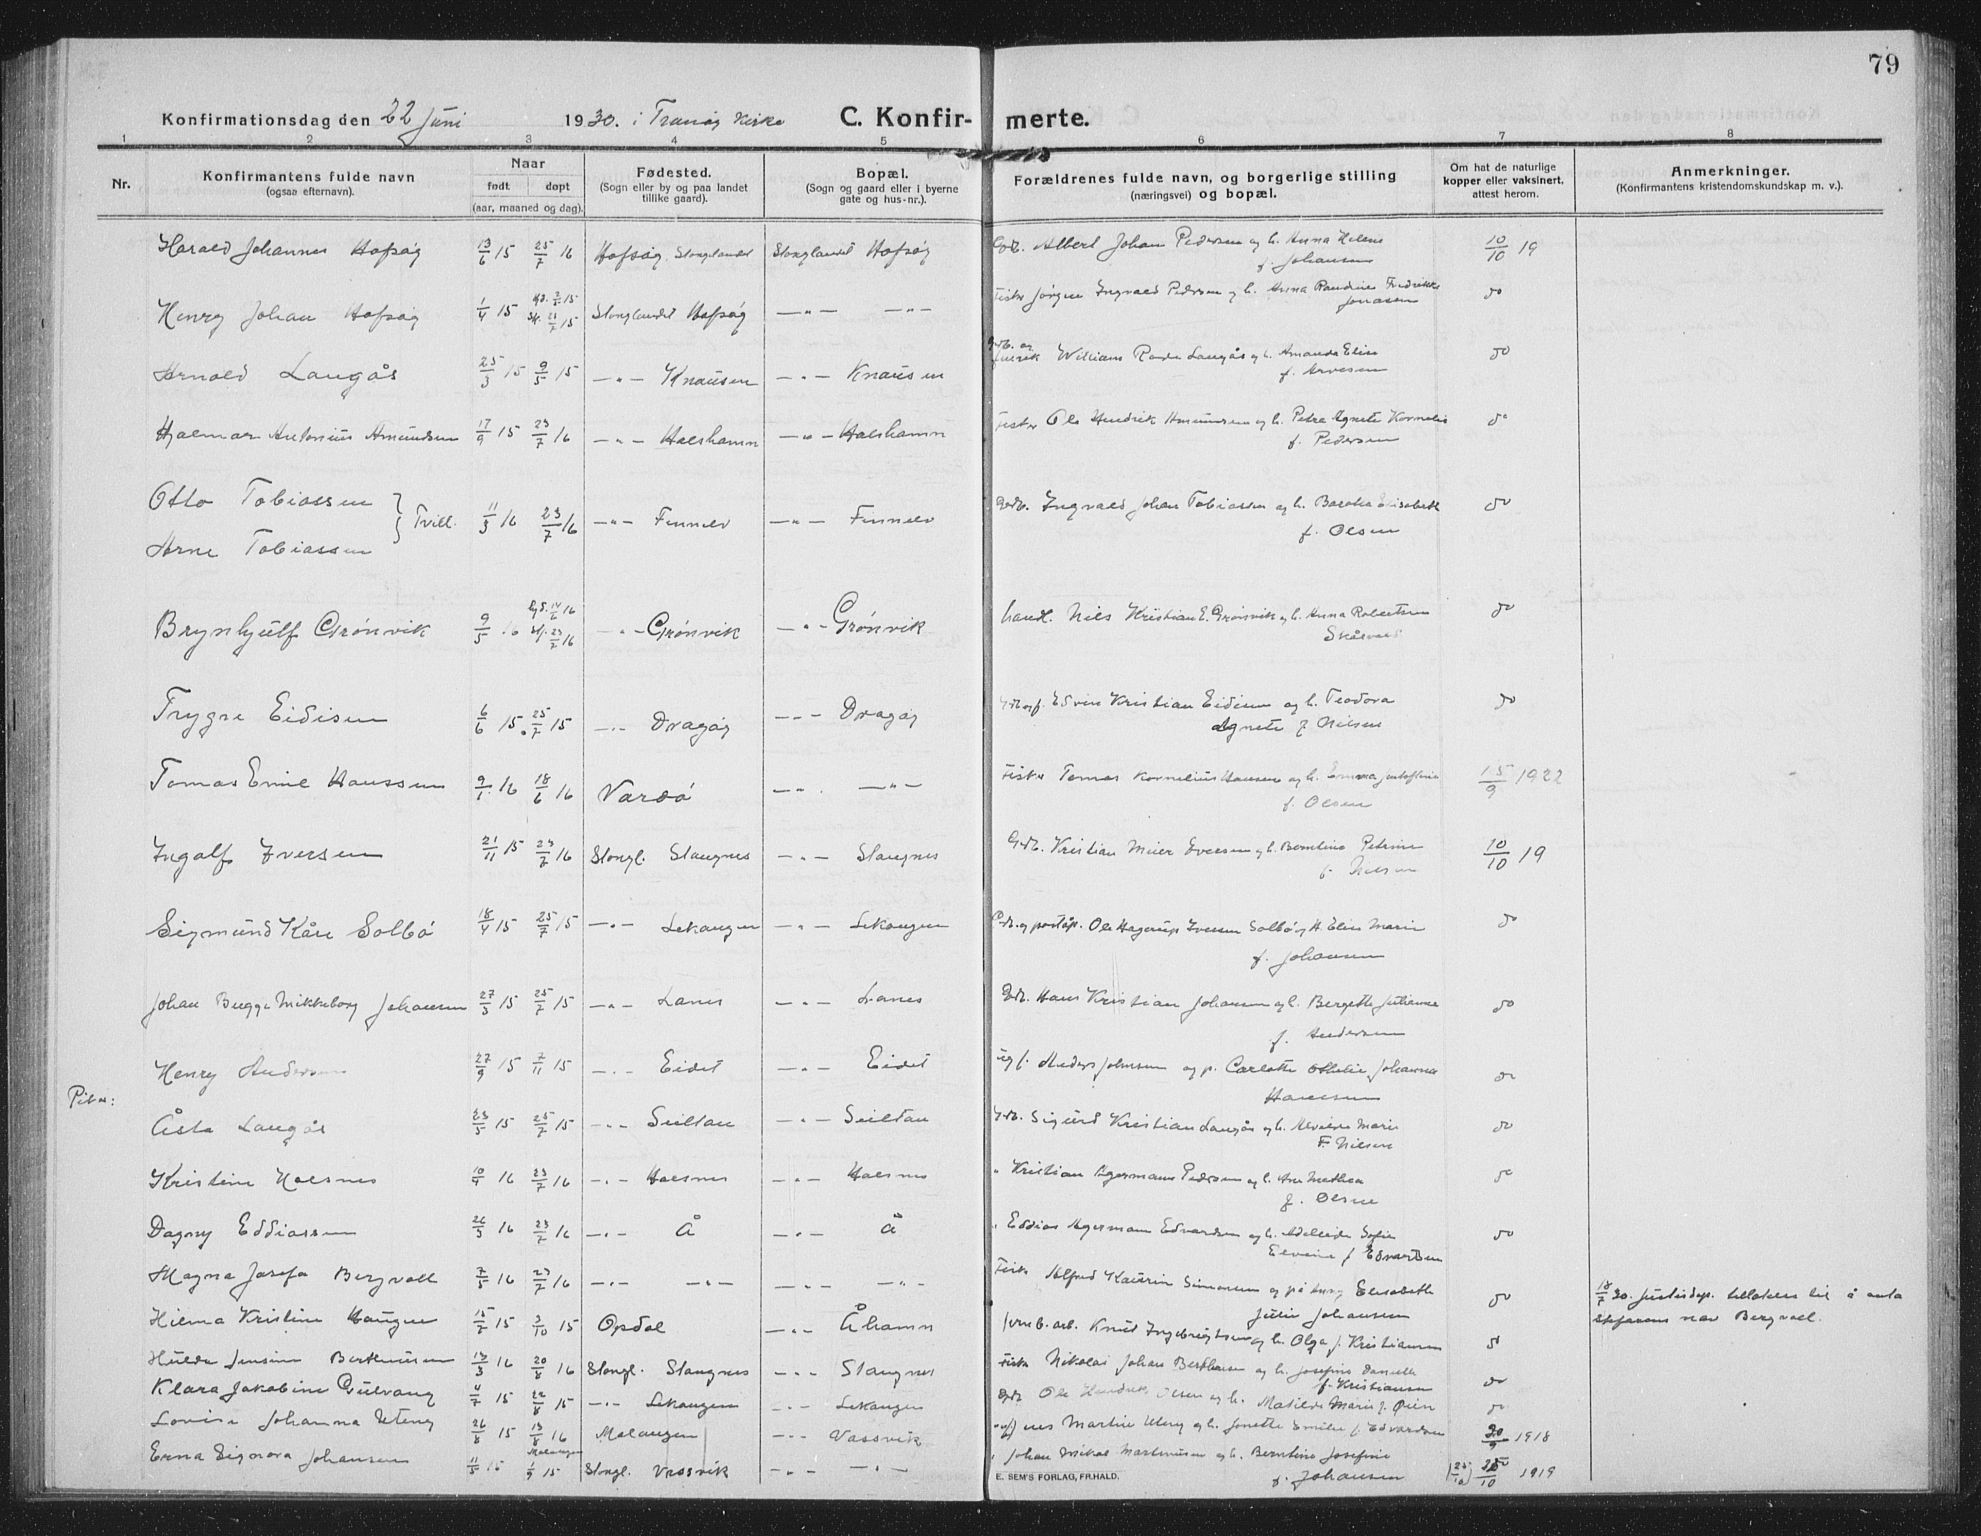 79
Konfirmationsdag den 22 Juni 1930. i Tranøy Kirke C. Konfir- merte.
1 2 3 4 5 6 7 8
Nr. Konfirmantens fulde navn (ogsaa efternavn). Naar født døpt (aar, maaned og dag). Fødested. (Sogn eller by og paa landet tillike gaard). Bopæl. (Sogn og gaard eller i byerne gate og hus-nr.). Forældrenes fulde navn, og borgerlige stilling (næringsvei) og bopæl. Om hat de naturlige kopper eller vaksinert, attest herom. Anmerkninger. (Konfirmantens kristendomskundskap m. v.).
Harald Johannes Hofsøy 13/6 15 25/7 16 Hofsøy, Stonglandet Stonglandet Hofsøy Gdb. Albert Johan Pedersen og h. Anna Helene 10/10 19
f. Johansen
Henry Johan Hofsøy 1/4 15 Stonglandet Hofsøy —"— —"— Fisker Jørgen Ingvald Pedersen og h. Anna Randine Fredrikke do
Jonasen
Arnold Langås 25/3 15 9/5 15 —"— Knausen —"— Knausen Williams Langås og h. Amanda Elise do
f. Arvesen
Hjalmar Antonius Amundsen 17/9 15 23/7 16 —"— Halshamn —"— Halshamn Fisker Ole Hendrik Amundsen og h. Petra Agnete Kornelia do
f. Pedersen
Otto Tobiassen } Tvill. 11/3 16 23/7 16 —"— Finnelv —"— Finnelv Gdb. Ingvald Johan Tobiassen og h. Elisabeth do
Arne Tobiassen f. Olsen
Brynhjulf Grønvik 9/5 16 —"— Grønvik —"— Grønvik handl. Nils Kristian E. Grønvik og h. Anna Robertsen do
Trygve Eidisen 6/6 15. 25/7 15 —"— Dragøy —"— Dragøy Edvin Kristian Eidisen og h. Teodora do
Agnete f. Nilsen
Tomas Emil Hanssen 9/1 16 18/6 16 Vardø —"— —"— Fisker Tomas Kornelius Hansen og h. Emma 15/9 1922
f. Olsen
Ingolf Iversen 21/11 15 23/7 16 Stongl. Stangnes —"— Stangnes Gdb. Kristian Meier Iversen og h. Berntine Petrine 10/10 19
f. Nilsen
Sigmund Kåre Solbø 18/4 15 25/7 15 —"— Lekangen —"— Lekangen Gdb. og poståp. Ole Hagerup Iversen Solbø og H. Elise Marie do
f. Johansen
Johan Bugge Mikkelborg Johansen 27/3 15 25/7 15 —"— Lanes —"— Lanes Gdb. Hans Kristian Johansen og h. Bergette Julianna do
f. Andersen
Henry Andersen 27/9 15 7/11 15 —"— Eidet —"— Eidet Anders Johnsen og p. Carlotte Othelie Johanna do
Hansen
Piker:
Åsta Langås 23/5 15 25/7 15 —"— —"— Gdb. Sigurd Kristian Langås og h. Alvilde Marie do
F. Nilsen
Kristine Halsnes 10/4 16 23/7 16 —"— Halsnes —"— Halsnes " Kristian Agermann Pedersen og h. Ane Methea do
f. Olsen
Dagny Eddiassen 26/3 16 23/7 16 —"— Å —"— Å " Eddias Agermann Edvardsen og h. Adeleide Sofie do
Elvine f. Edvardsen
Magna Josefa Bergvoll 7/5 16 23/7 16 —"— —"— —"— —"— Fisk. Alfred Simonsen og Elisabeth do 18/7 30. Justisdep. tillatelse til å anta
Julie Johansen stefarens navn Bergvoll.
Hilma Kristine Haugen 15/7 15 3/10 15 Opdal —"— Åhamn jernb.arb. Knud Ingebrigtsen og h. Olga f. Kristiansen do
Hulda Jensine Berthinsen 13/3 16 20/8 16 Stongl. Stangnes —"— Stangnes Fisk. Nikolai Johan Berthinsen og h. Josefine Danielle do
f. Kristiansen
Klara Jakobine Gulvang 4/7 15 22/8 15 —"— Lekangen —"— Lekangen Gdb. Ole Hendrik Olsen og h. Matilde Marie f. Øien do
Lovise Johanna Uteng 26/8 15 13/8 16 Malangen —"— Vassvik Martin Uteng og h. Jonette Emilie f. Edvardsen 20/9 1918
Malangen
Erna Signora Johansen 11/5 15 1/9 15 Stongl. Vassvik —"— —"— " Johan Mikal Martinusen og h. Berntine Josefine
f. Johansen 1919
E. SEM'S FORLAG, FR.HALD.